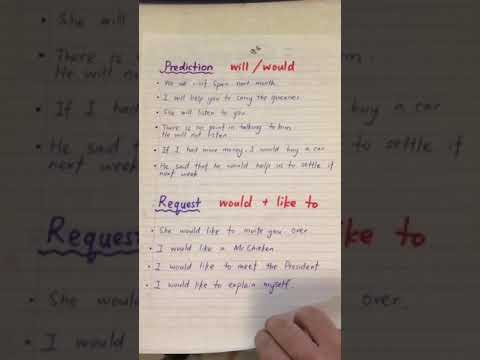 Prediction will/would
• We will visit Spain next month.
• I will help you to carry the
• She will listen to you.
• There is no point in talking to him.
He will not listen.
• If I had more money, I would buy a car
• He said that he would help us to settle if
next week
Request would + like to
• She would like to invite you over.
• I would like a McChicken
• I would like to meet the President
• I would like to explain myself.